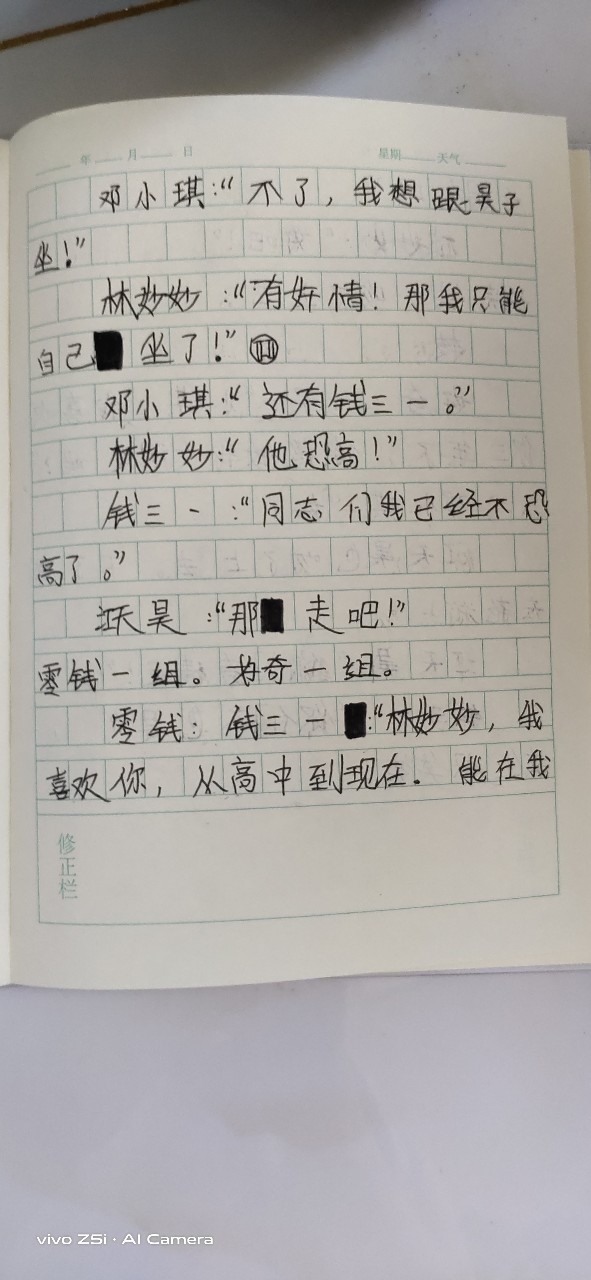 年 月 日 星期 天气
邓小琪:“不了,我想跟昊子
坐!”
林妙妙:“有奸情!那我只能
自己坐了!”
邓小琪:“还有钱三一。”
林妙妙:“他恐高!”
钱三一:“同志们我已经不恐
高了。”
江天昊:“那走吧!”
零钱一组。为奇一组。
零钱:钱三一:“林妙妙,我
喜欢你,从高中到现在.能在我
修正栏
vivo Z5i · AI Camera